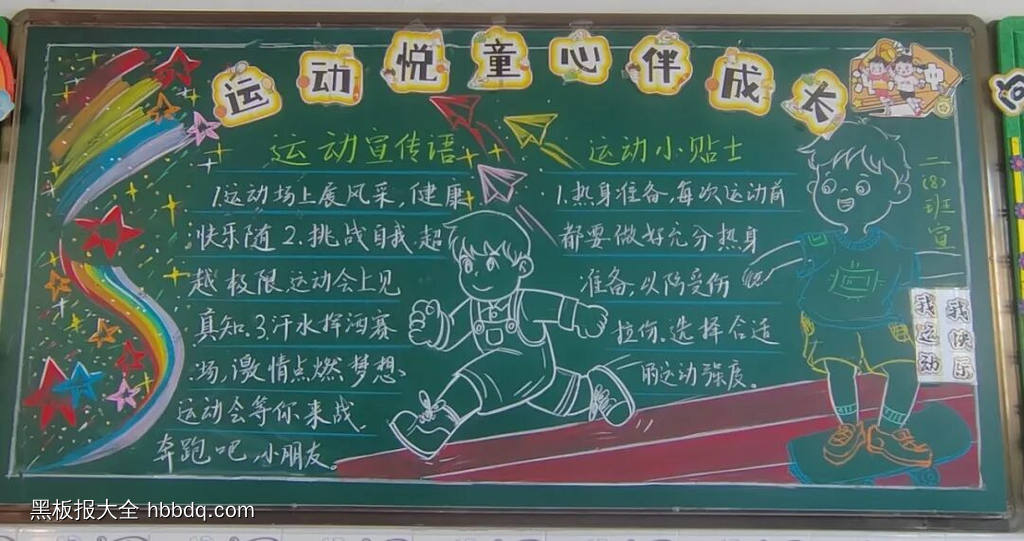 运动悦童心伴成长
运动宣传语
1.运动场上展风采,健康
快乐随 2.挑战自我 超
越极限 运动会上见
真知.3.汗水挥洒赛
场,激情点燃梦想.
运动会等你来战
奔跑吧,小朋友。
运动小贴士
1.热身准备,每次运动前
都要做好充分热身
准备,以防受伤
拉伤.选择合适
的运动强度。
二(8)班宣
我运动
我快乐
黑板报大全 hbbdq.com